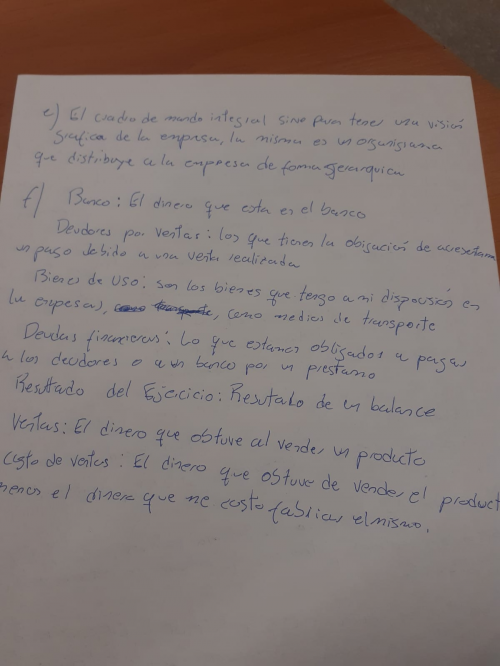 e) El cuadro de mando integral sirve para tener una visión
grafica de la empresa, la misma es un organigrama
que distribuye a la empresa de forma gerarquica
f) Banco: El dinero que esta en el banco
Deudores por ventas: los que tienen la obligación de
un pago debido a una venta realizada
Bienes de uso: son los bienes que tengo a mi disposición en
la empresa, como medios de transporte
Deudas financieras: Lo que estamos obligados a pagar
a los deudores o a un banco por un prestamo
Resultado del Ejercicio: Resutado de un balance
Ventas: El dinero que obtuve al vender un producto
Costo de ventas: El dinero que obtuve de vender el product
menos el dinero que me costo fabricar el mismo.